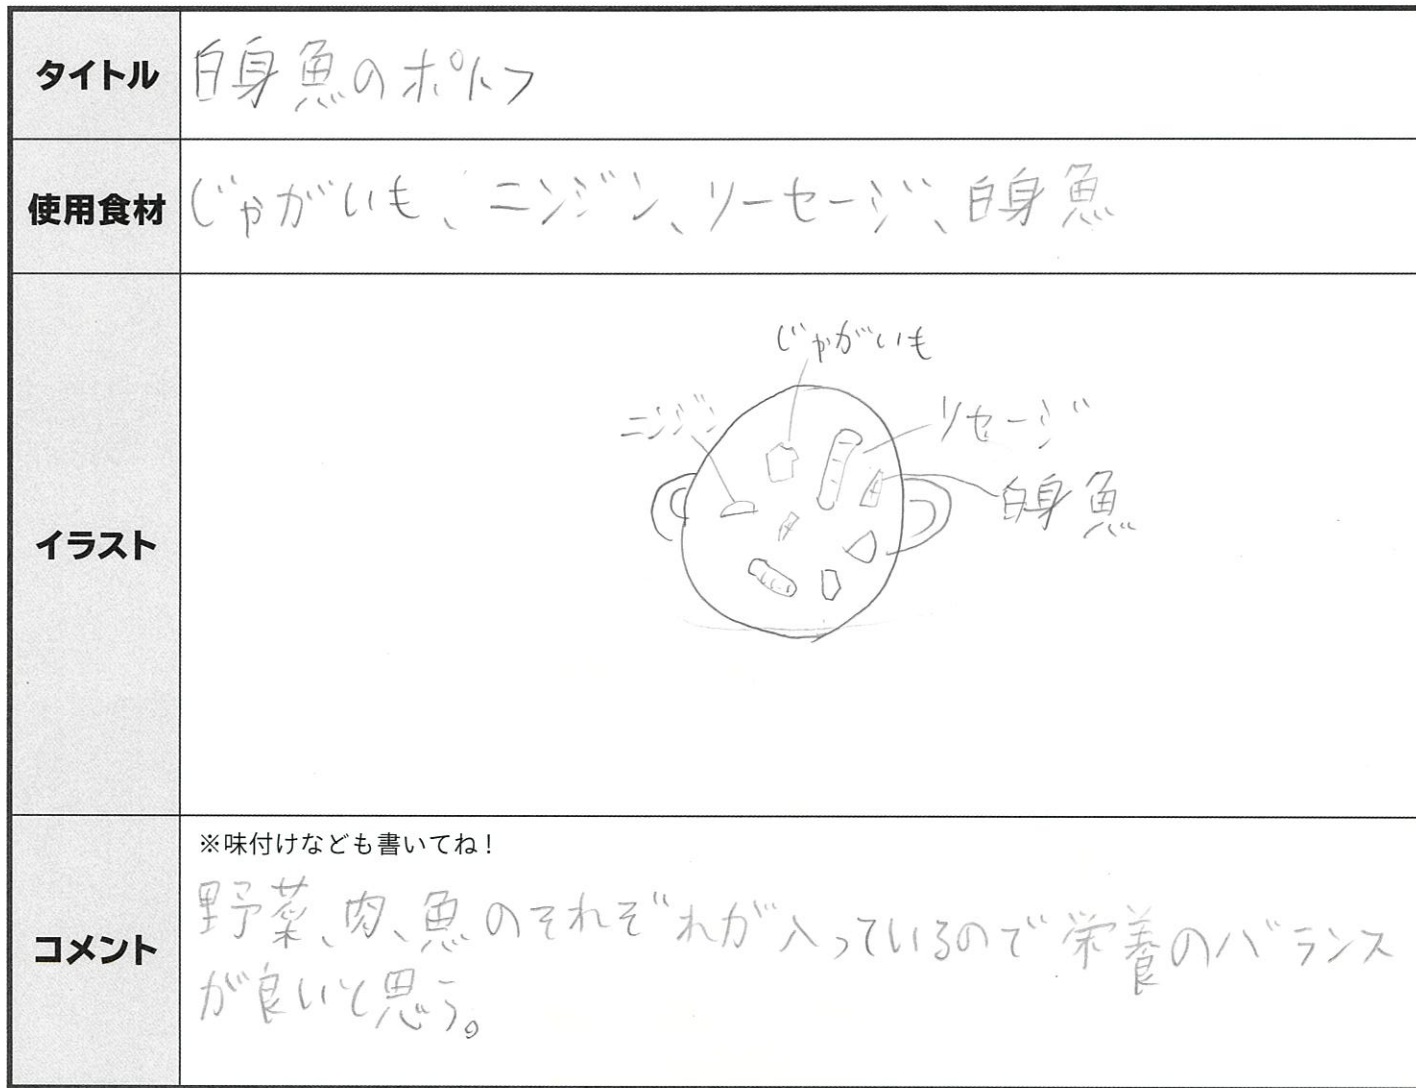 タイトル
白身魚のポトフ
使用食材
じゃがいも、ニンジン、ソーセージ、白身魚
イラスト
じゃがいも
ニンジン
ソセージ
白身魚
コメント
※味付けなども書いてね！
野菜、肉、魚のそれぞれが入っているので栄養のバランス
が良いと思う。